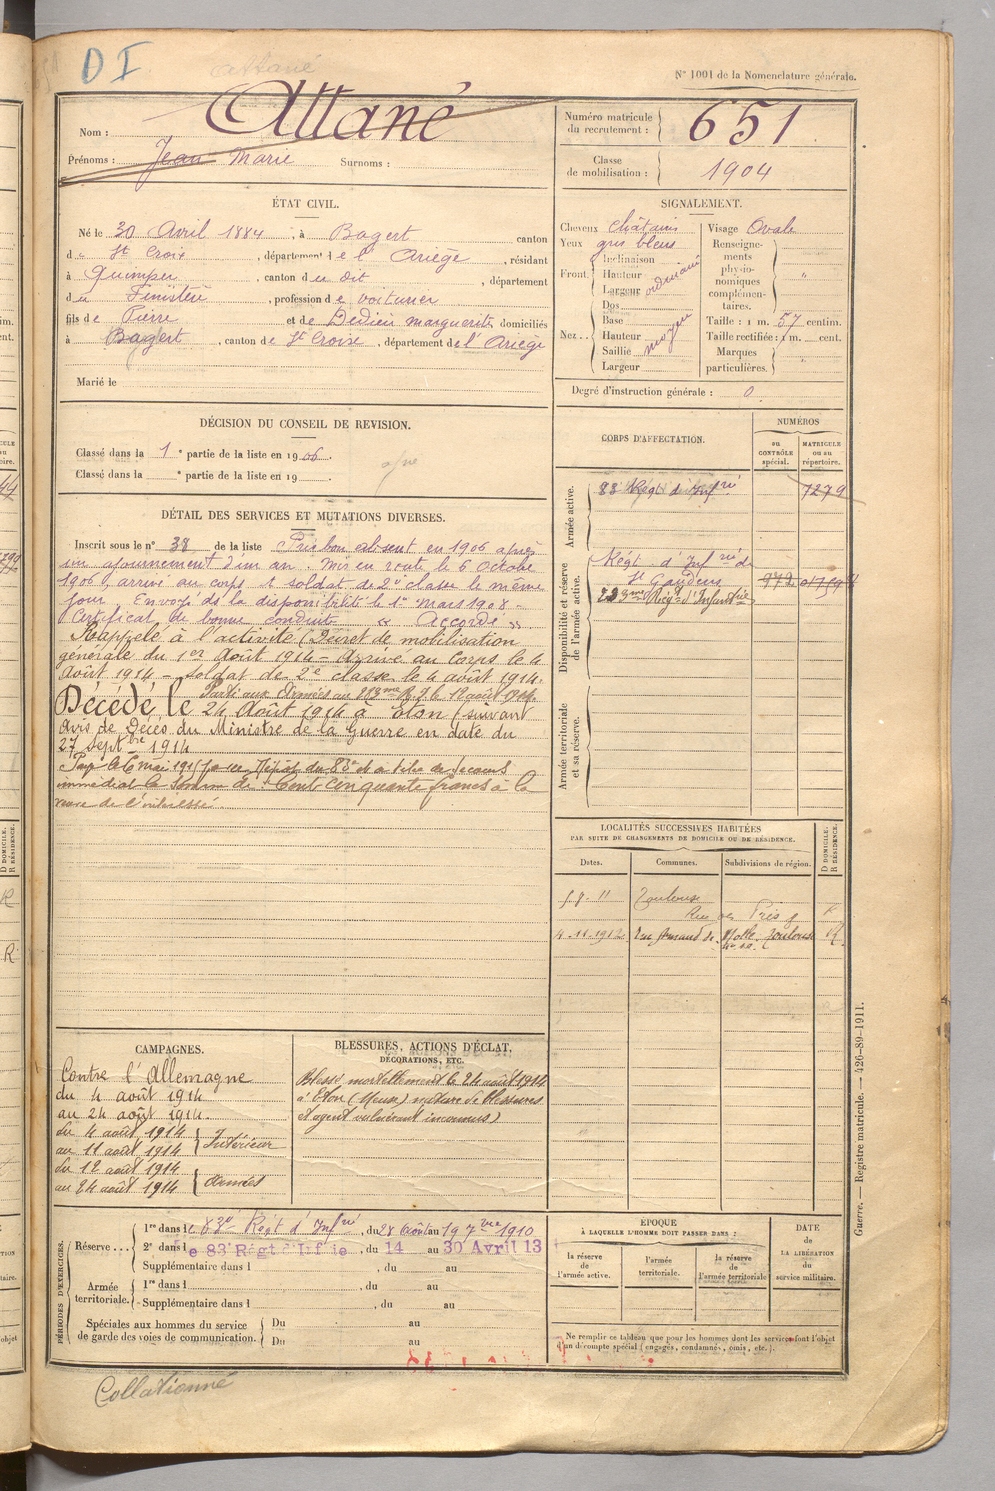 D I
Attané
N° 1001 de la Nomenclature générale.
Nom : Attané
Prénoms : Jean Marie Surnoms :
Numéro matricule du recrutement : 651
Classe de mobilisation : 1904
ÉTAT CIVIL.
Né le 30 Avril 1884, à Bagert canton
de St Croix, département de l'Ariège, résidant
à Quimper, canton du dit, département
du Finistère, profession de voiturier
fils de Pierre et de Dedieu Marguerite domiciliés
à Bagert, canton de St Croix, département de l'Ariège
Marié le
SIGNALEMENT.
Cheveux châtains
Yeux gris bleus
Front. Inclinaison
Hauteur
Largeur
ordinaire
Nez.. Dos
Base
Hauteur
Saillie
Largeur
moyen
Visage Ovale
Renseignements physionomiques complémentaires. "
Taille : 1 m. 57 centim.
Taille rectifiée : 1 m. cent.
Marques particulières.
Degré d'instruction générale : 0
DÉCISION DU CONSEIL DE REVISION.
Classé dans la 1e partie de la liste en 1906.
Classé dans la e partie de la liste en 19 .
DÉTAIL DES SERVICES ET MUTATIONS DIVERSES.
Inscrit sous le n° 38 de la liste Pris bon absent en 1906 après
un ajournement d'un an. Mis en route le 6 Octobre
1906, arrivé au corps & soldat de 2e classe le même
jour. Envoyé ds la disponibilité le 1er mars 1908 -
Certificat de bonne conduite « Accordé »
Rappelé à l'activité (Décret de mobilisation
générale du 1er Août 1914 - Arrivé au Corps le 4
Août 1914 - soldat de 2e classe le 4 août 1914.
Parti aux Armées au
Décédé le 24 Août 1914 à Eton (suivant
Avis de Décès du Ministre de la Guerre en date du
27 Septbre 1914
Payé le 6 mai 1915 par le Dépôt du 83e à titre de secours
immédiat la somme de Cent cinquante francs à la
veuve de l'intéressé.
CORPS D'AFFECTATION.
NUMÉROS
au CONTRÔLE spécial.
MATRICULE ou au répertoire.
Armée active.
83 Régt d'Infrie 7279
Disponibilité et réserve de l'armée active.
Régt d'Infrie de
St Gaudens 972
283me Régt d'Infanterie
Armée territoriale et sa réserve.
LOCALITÉS SUCCESSIVES HABITÉES
PAR SUITE DE CHANGEMENTS DE DOMICILE OU DE RÉSIDENCE.
Dates.
Communes.
Subdivisions de région.
D DOMICILE. R RÉSIDENCE.
Toulouse
Rue des
4.11.1912 Toulouse R
CAMPAGNES.
Contre l'Allemagne
du 4 août 1914
au 24 août 1914.
du 4 août 1914
au 11 août 1914 Intérieur
du 12 août 1914
au 24 août 1914 Armées
BLESSURES, ACTIONS D'ÉCLAT,
DÉCORATIONS, ETC.
Blessé mortellement le 24 août 1914
à Eton (Meuse) nature de blessures
et agent vulnérant inconnus)
PÉRIODES D'EXERCICES.
Réserve...
1re dans le 83e Régt d'Infrie, du 28 Août au 19 7bre 1910
2e dans le 83e Régt d'Inf ie, du 14 au 30 Avril 13
Supplémentaire dans l , du au
Armée territoriale.
1re dans l , du au
Supplémentaire dans l , du au
Spéciales aux hommes du service de garde des voies de communication.
Du au
Du au
ÉPOQUE
À LAQUELLE L'HOMME DOIT PASSER DANS :
la réserve de l'armée active.
l'armée territoriale.
la réserve de l'armée territoriale
DATE DE LA LIBÉRATION du service militaire.
Ne remplir ce tableau que pour les hommes dont les services font l'objet
d'un décompte spécial (engagés, condamnés, omis, etc.).
Guerre. — Registre matricule. — 426-89-1911.
Collationné